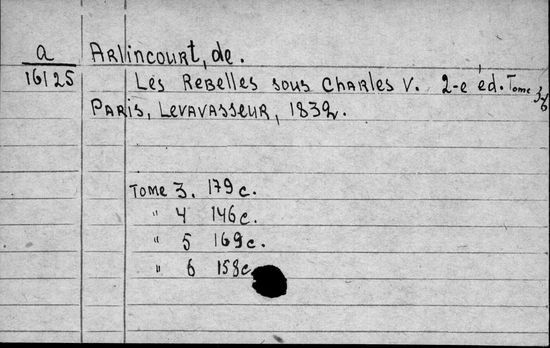 a Arlincourt, de.
16125 Les Rebelles sous Charles V. 2-e éd. Tome 3-6
Paris, Levavasseur, 1832.
Tome 3. 179 c.
" 4 146 c.
" 5 169 c.
" 6 158 c